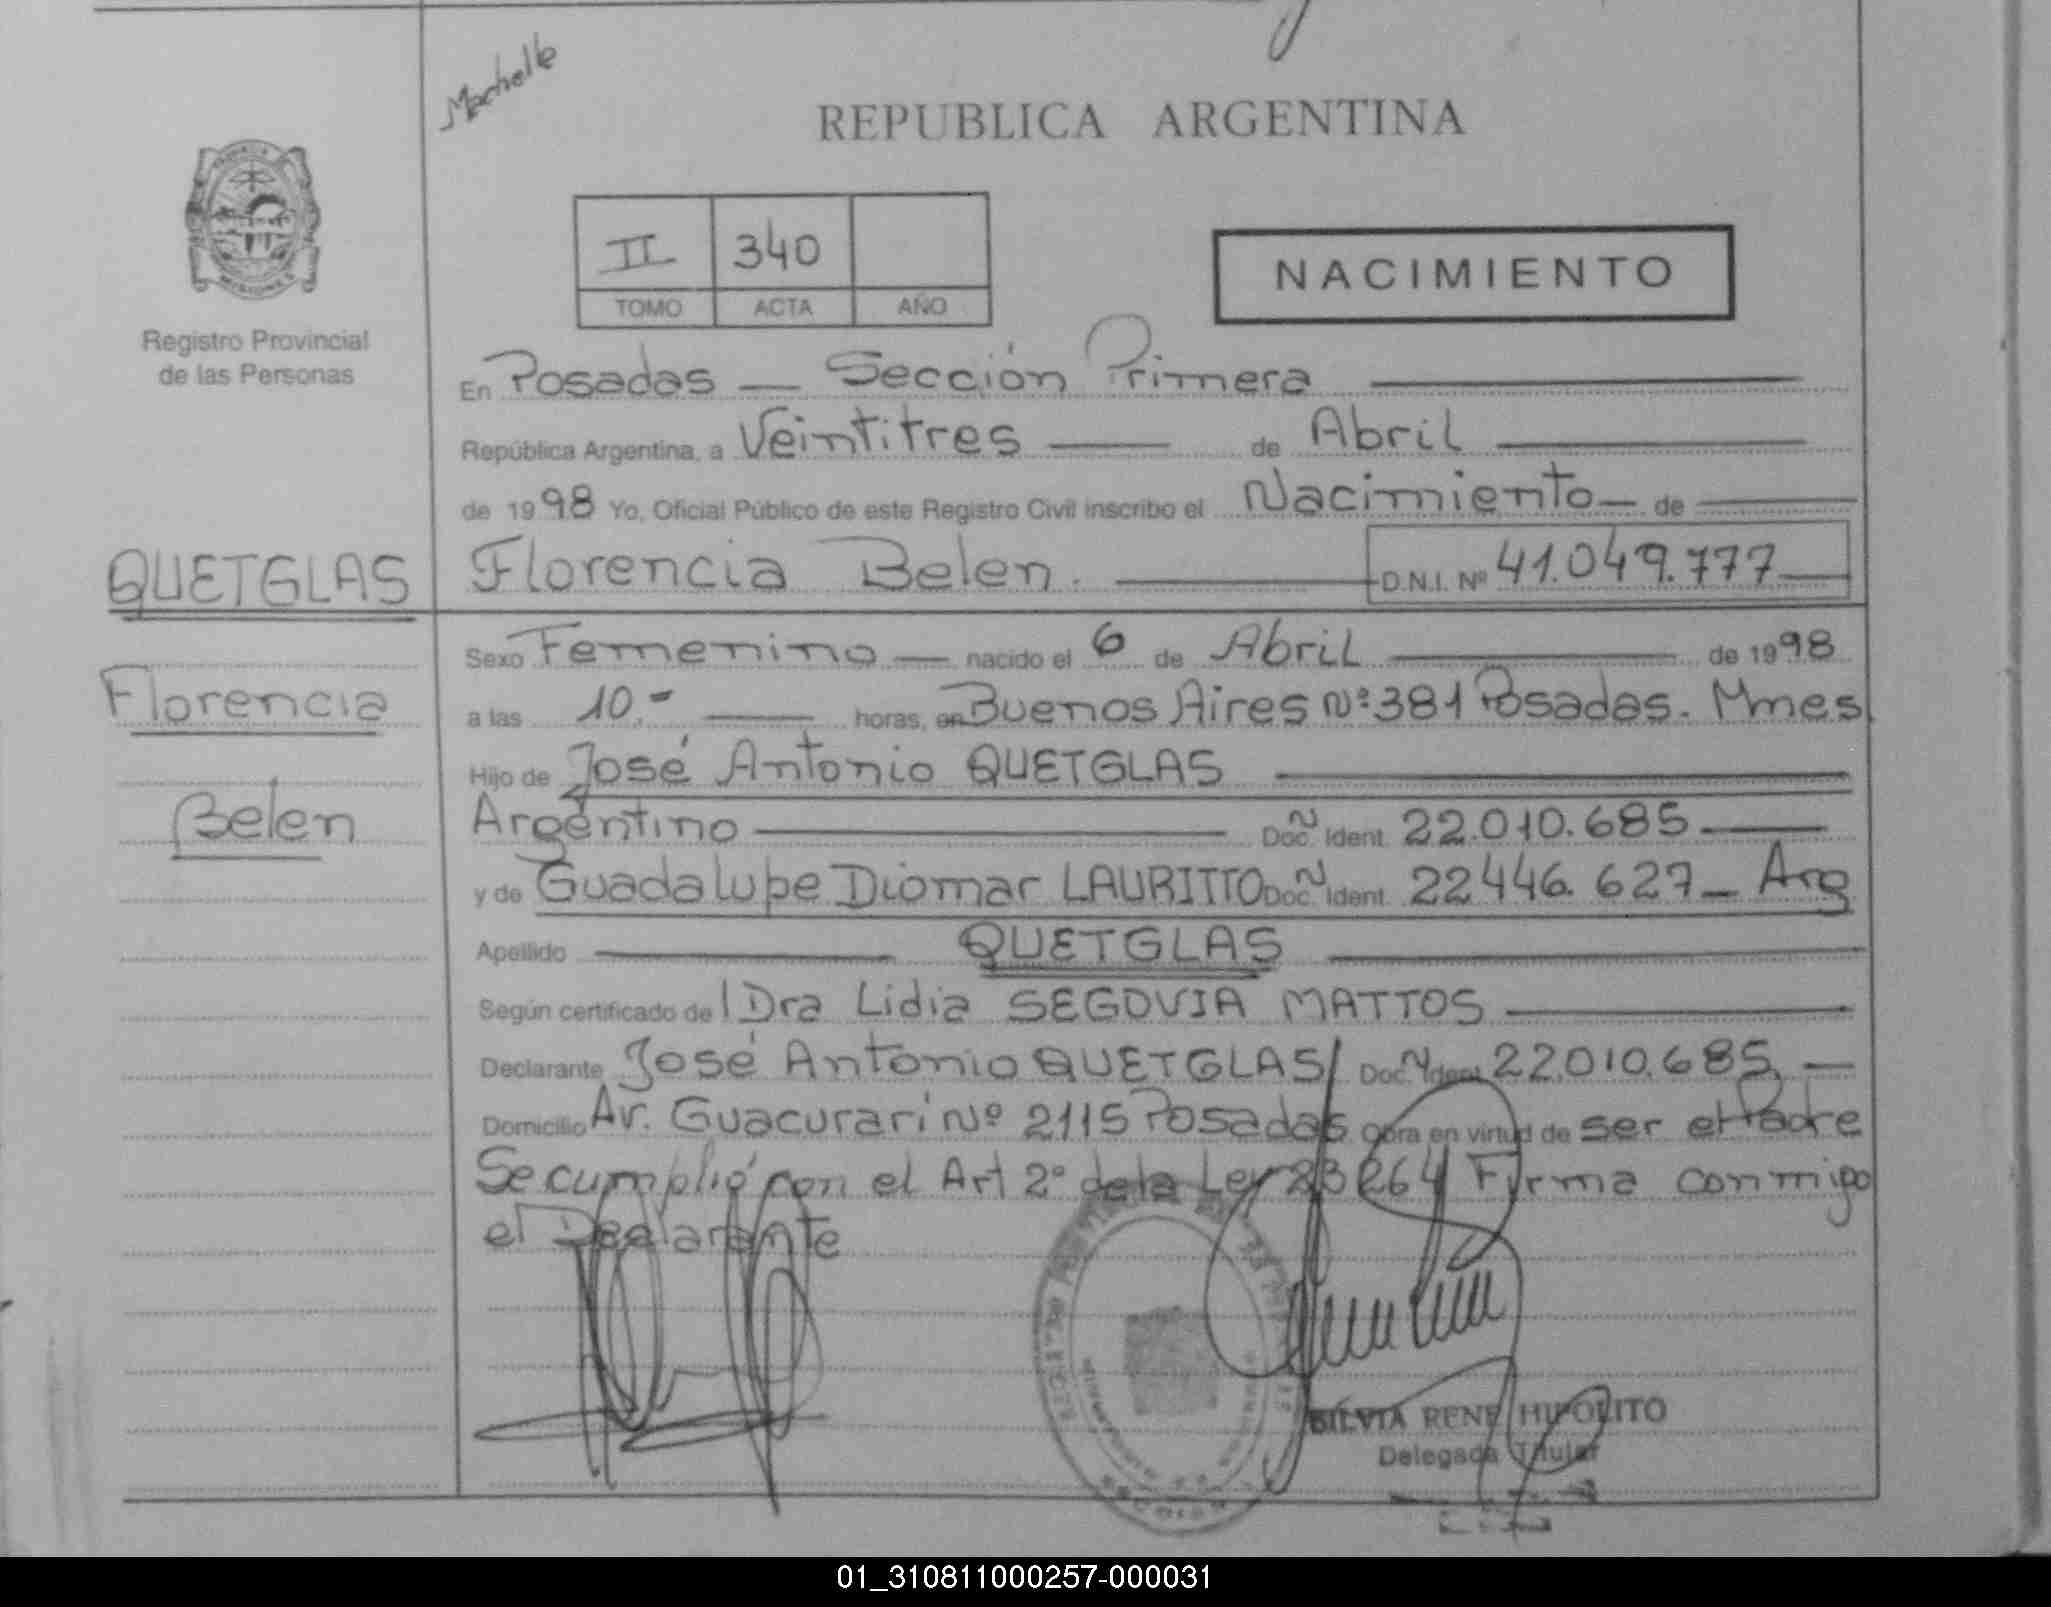 Machelle
REPUBLICA ARGENTINA
II 340
TOMO ACTA AÑO
NACIMIENTO
Registro Provincial
de las Personas
En Posadas — Sección Primera
República Argentina, a Veintitres de Abril
de 1998 Yo, Oficial Público de este Registro Civil inscribo el Nacimiento de
QUETGLAS
Florencia Belen. D.N.I. Nº 41.049.777
Florencia
Belen
Sexo Femenino nacido el 6 de Abril de 1998
a las 10.- horas, en Buenos Aires Nº 381 Posadas. Mnes
Hijo de José Antonio QUETGLAS
Argentino Doc. N Ident. 22.010.685
y de Guadalupe Diomar LAURITTO Doc. N Ident. 22446.627 Arg
Apellido QUETGLAS
Según certificado de Dra Lidia SEGOVIA MATTOS
Declarante José Antonio QUETGLAS Doc. N Ident. 22.010.685.
Domicilio Av. Guacurarí Nº 2115 Posadas obra en virtud de ser el Padre
Se cumplió con el Art 2º de la Ley 23264 Firma conmigo
el Declarante
SILVIA RENE HIPOLITO
Delegada Titular
01_310811000257-000031